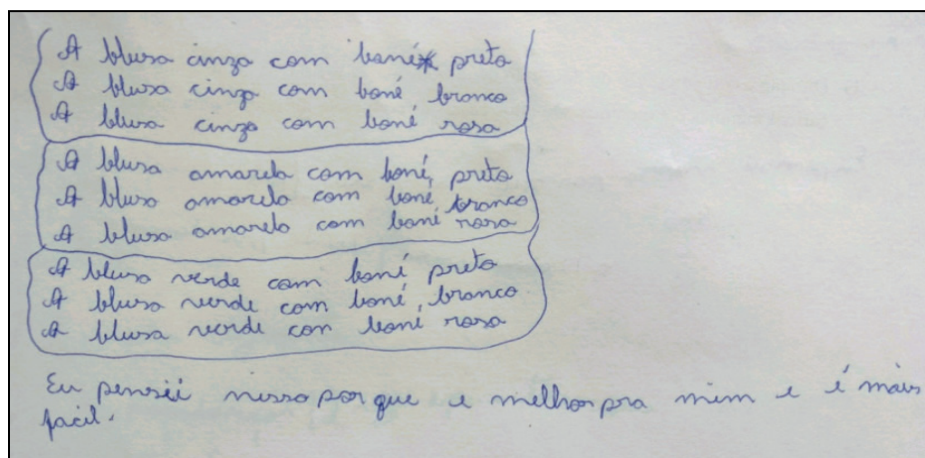 A blusa cinza com boné preto
A blusa cinza com boné branco
A blusa cinza com boné rosa
A blusa amarela com boné, preto
A blusa amarela com boné, branco
A blusa amarela com boné rosa
A blusa verde com boné preto
A blusa verde com boné, branco
A blusa verde com boné rosa
Eu pensei nisso porque e melhor pra mim e é máis
facil.